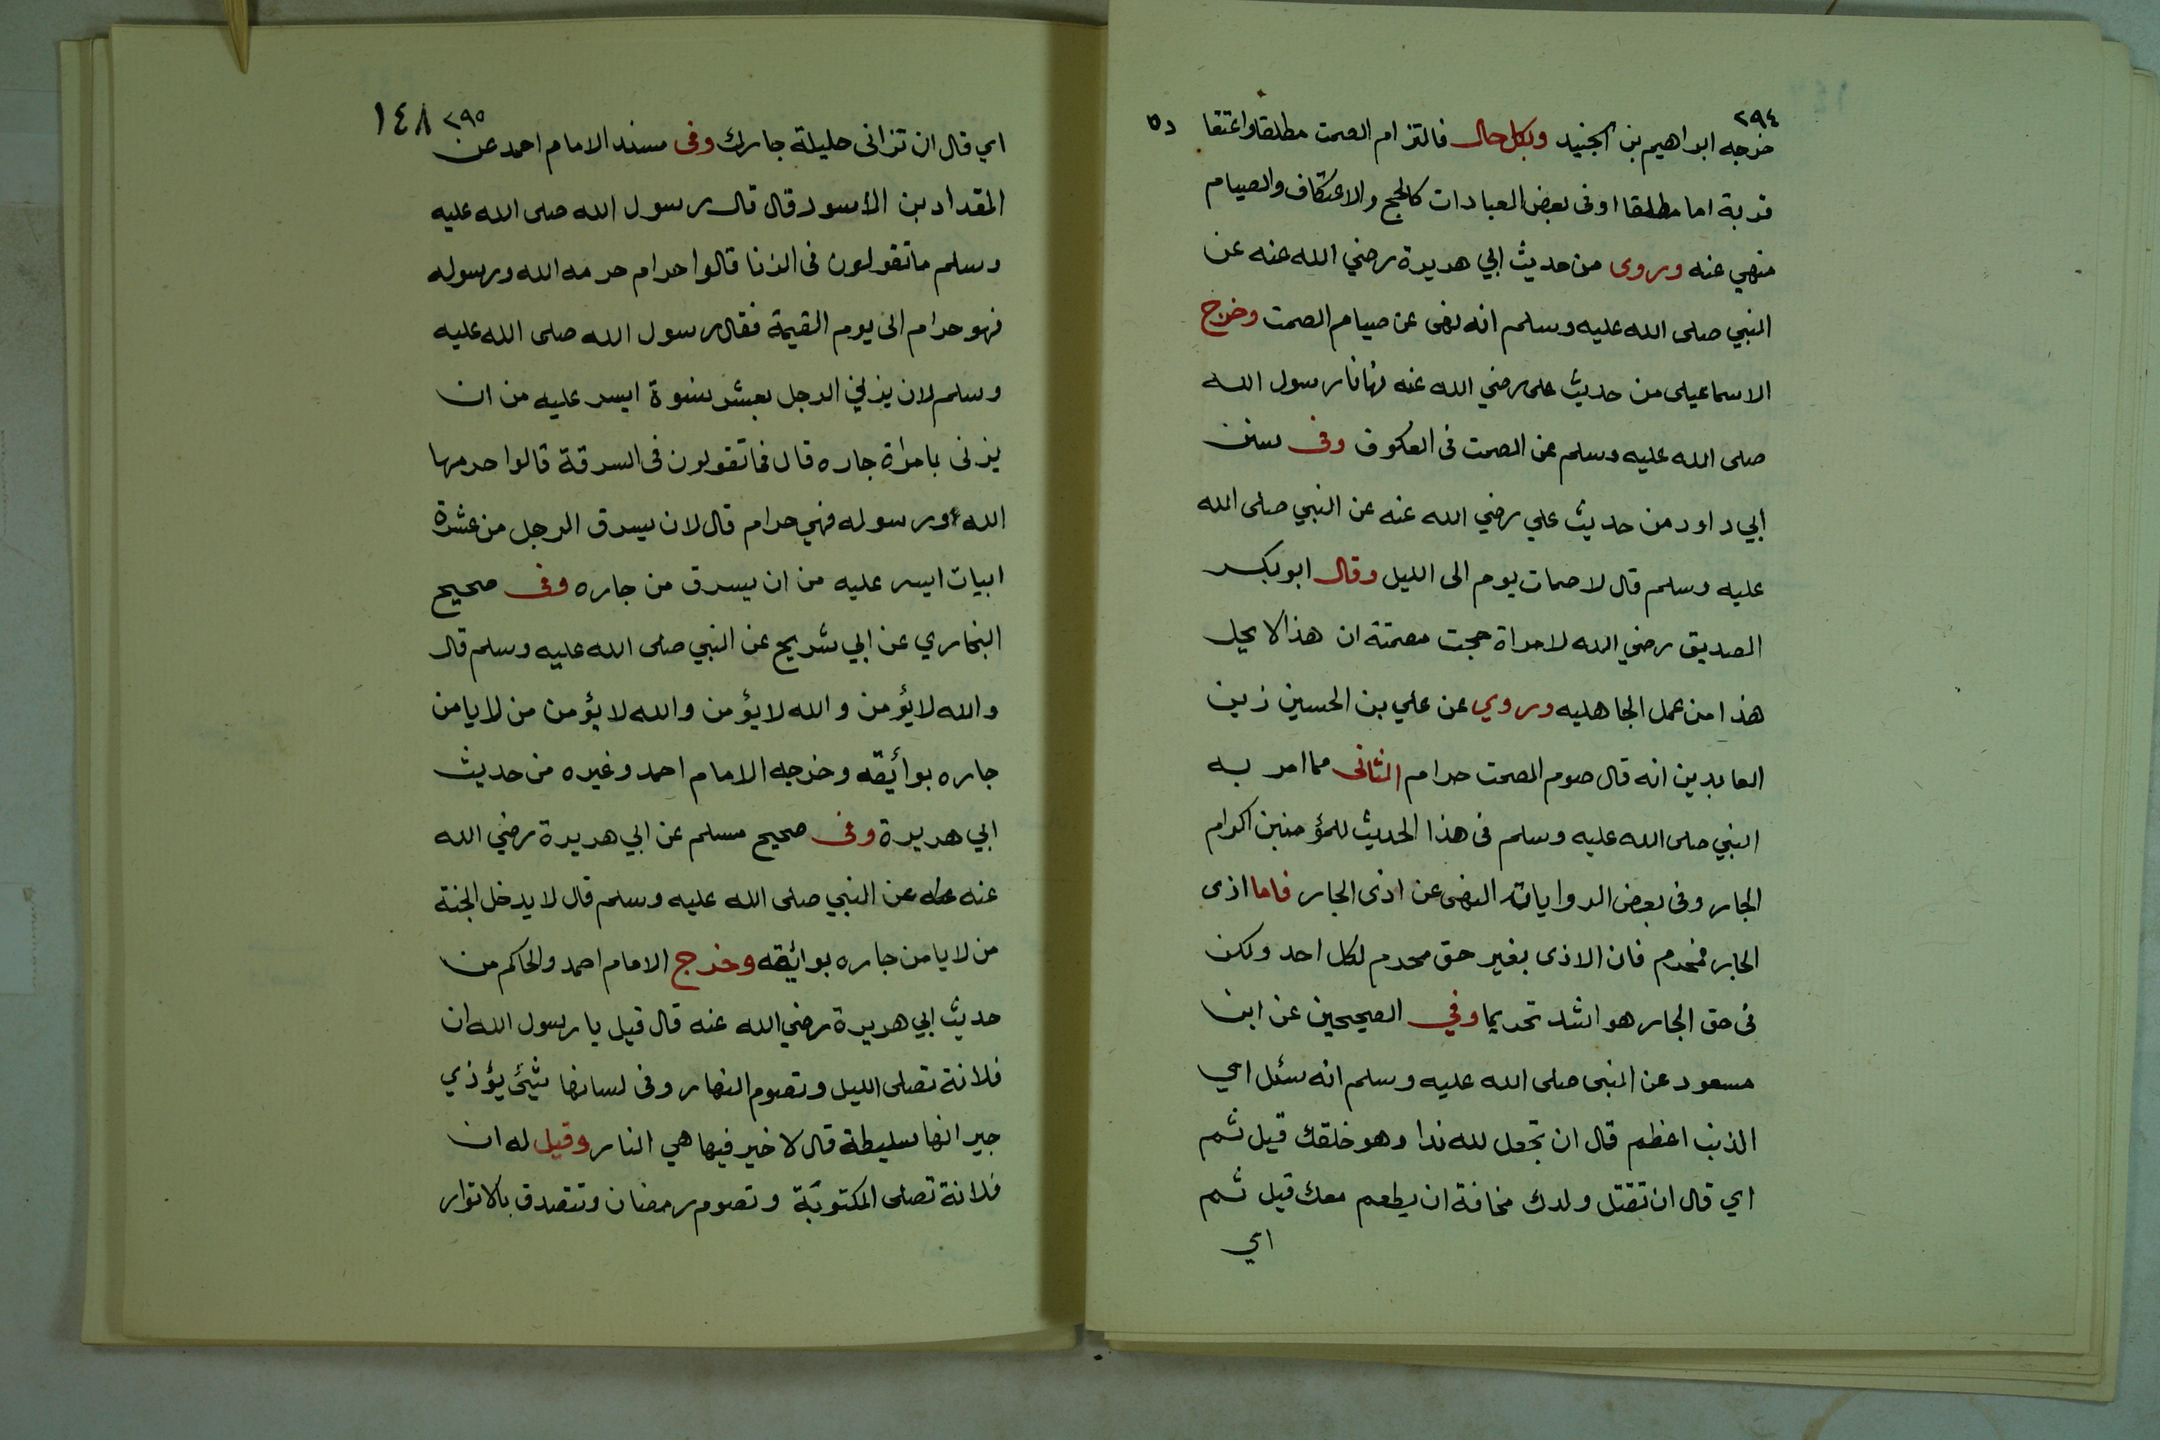 ٢٩٤
خرجه ابراهيم بن الجنيد وبكل حال فالتزام الصمت مطلقا واعتقا ده
قربة اما مطلقا او فى بعض العبادات كالحج والاعتكاف والصيام
منهي عنه وروى من حديث ابي هريرة رضي الله عنه عن
النبي صلى الله عليه وسلم انه نهى عن صيام الصمت وخرج
الاسماعيلى من حديث على رضي الله عنه نهانا رسول الله
صلى الله عليه وسلم عن الصمت فى العكوف وفى سنن
ابي داود من حديث علي رضي الله عنه عن النبي صلى الله
عليه وسلم قال لا صمات يوم الى الليل وقال ابو بكر
الصديق رضي الله لامراة حجت مصمتة ان هذا لا يحل
هذا من عمل الجاهليه وروي عن علي بن الحسين زين
العابدين انه قال صوم الصمت حرام الثانى مما امر به
النبي صلى الله عليه وسلم فى هذا الحديث للمؤمنين اكرام
الجار وفى بعض الروايات النهى عن اذى الجار فاما اذى
الجار فمحرم فان الاذى بغير حق محرم لكل احد ولكن
فى حق الجار هو اشد تحريما وفي الصحيحين عن ابن
مسعود عن النبى صلى الله عليه وسلم انه سئل اي
الذنب اعظم قال ان تجعل لله ندا وهو خلقك قيل ثم
اي قال ان تقتل ولدك مخافة ان يطعم معك قيل ثم
اي
٢٩٥ ١٤٨
اي قال ان تزانى حليلة جارك وفى مسند الامام احمد عن
المقداد بن الأسود قال قال رسول الله صلى الله عليه
وسلم ما تقولون فى الزنا قالوا حرام حرمه الله ورسوله
فهو حرام الى يوم القيمة فقال رسول الله صلى الله عليه
وسلم لان يزني الرجل بعشر نسوة ايسر عليه من ان
يزنى بامراة جاره قال فما تقولون فى السرقة قالوا حرمها
الله ورسوله فهي حرام قال لان يسرق الرجل من عشرة
ابيات ايسر عليه من ان يسرق من جاره وفى صحيح
البخاري عن ابي شريح عن النبي صلى الله عليه وسلم قال
والله لا يؤمن والله لا يؤمن والله لا يؤمن من لا يامن
جاره بوائقه وخرجه الامام احمد وغيره من حديث
ابي هريرة وفى صحيح مسلم عن ابي هريرة رضي الله
عنه عن النبي صلى الله عليه وسلم قال لا يدخل الجنة
من لا يامن جاره بوائقه وخرج الامام احمد والحاكم من
حديث ابي هريرة رضي الله عنه قال قيل يا رسول الله ان
فلانة تصلى الليل وتصوم النهار وفى لسانها شيئ يؤذي
جيرانها سليطة قال لا خير فيها هي النار وقيل له ان
فلانة تصلى المكتوبة وتصوم رمضان وتتصدق بالاثوار